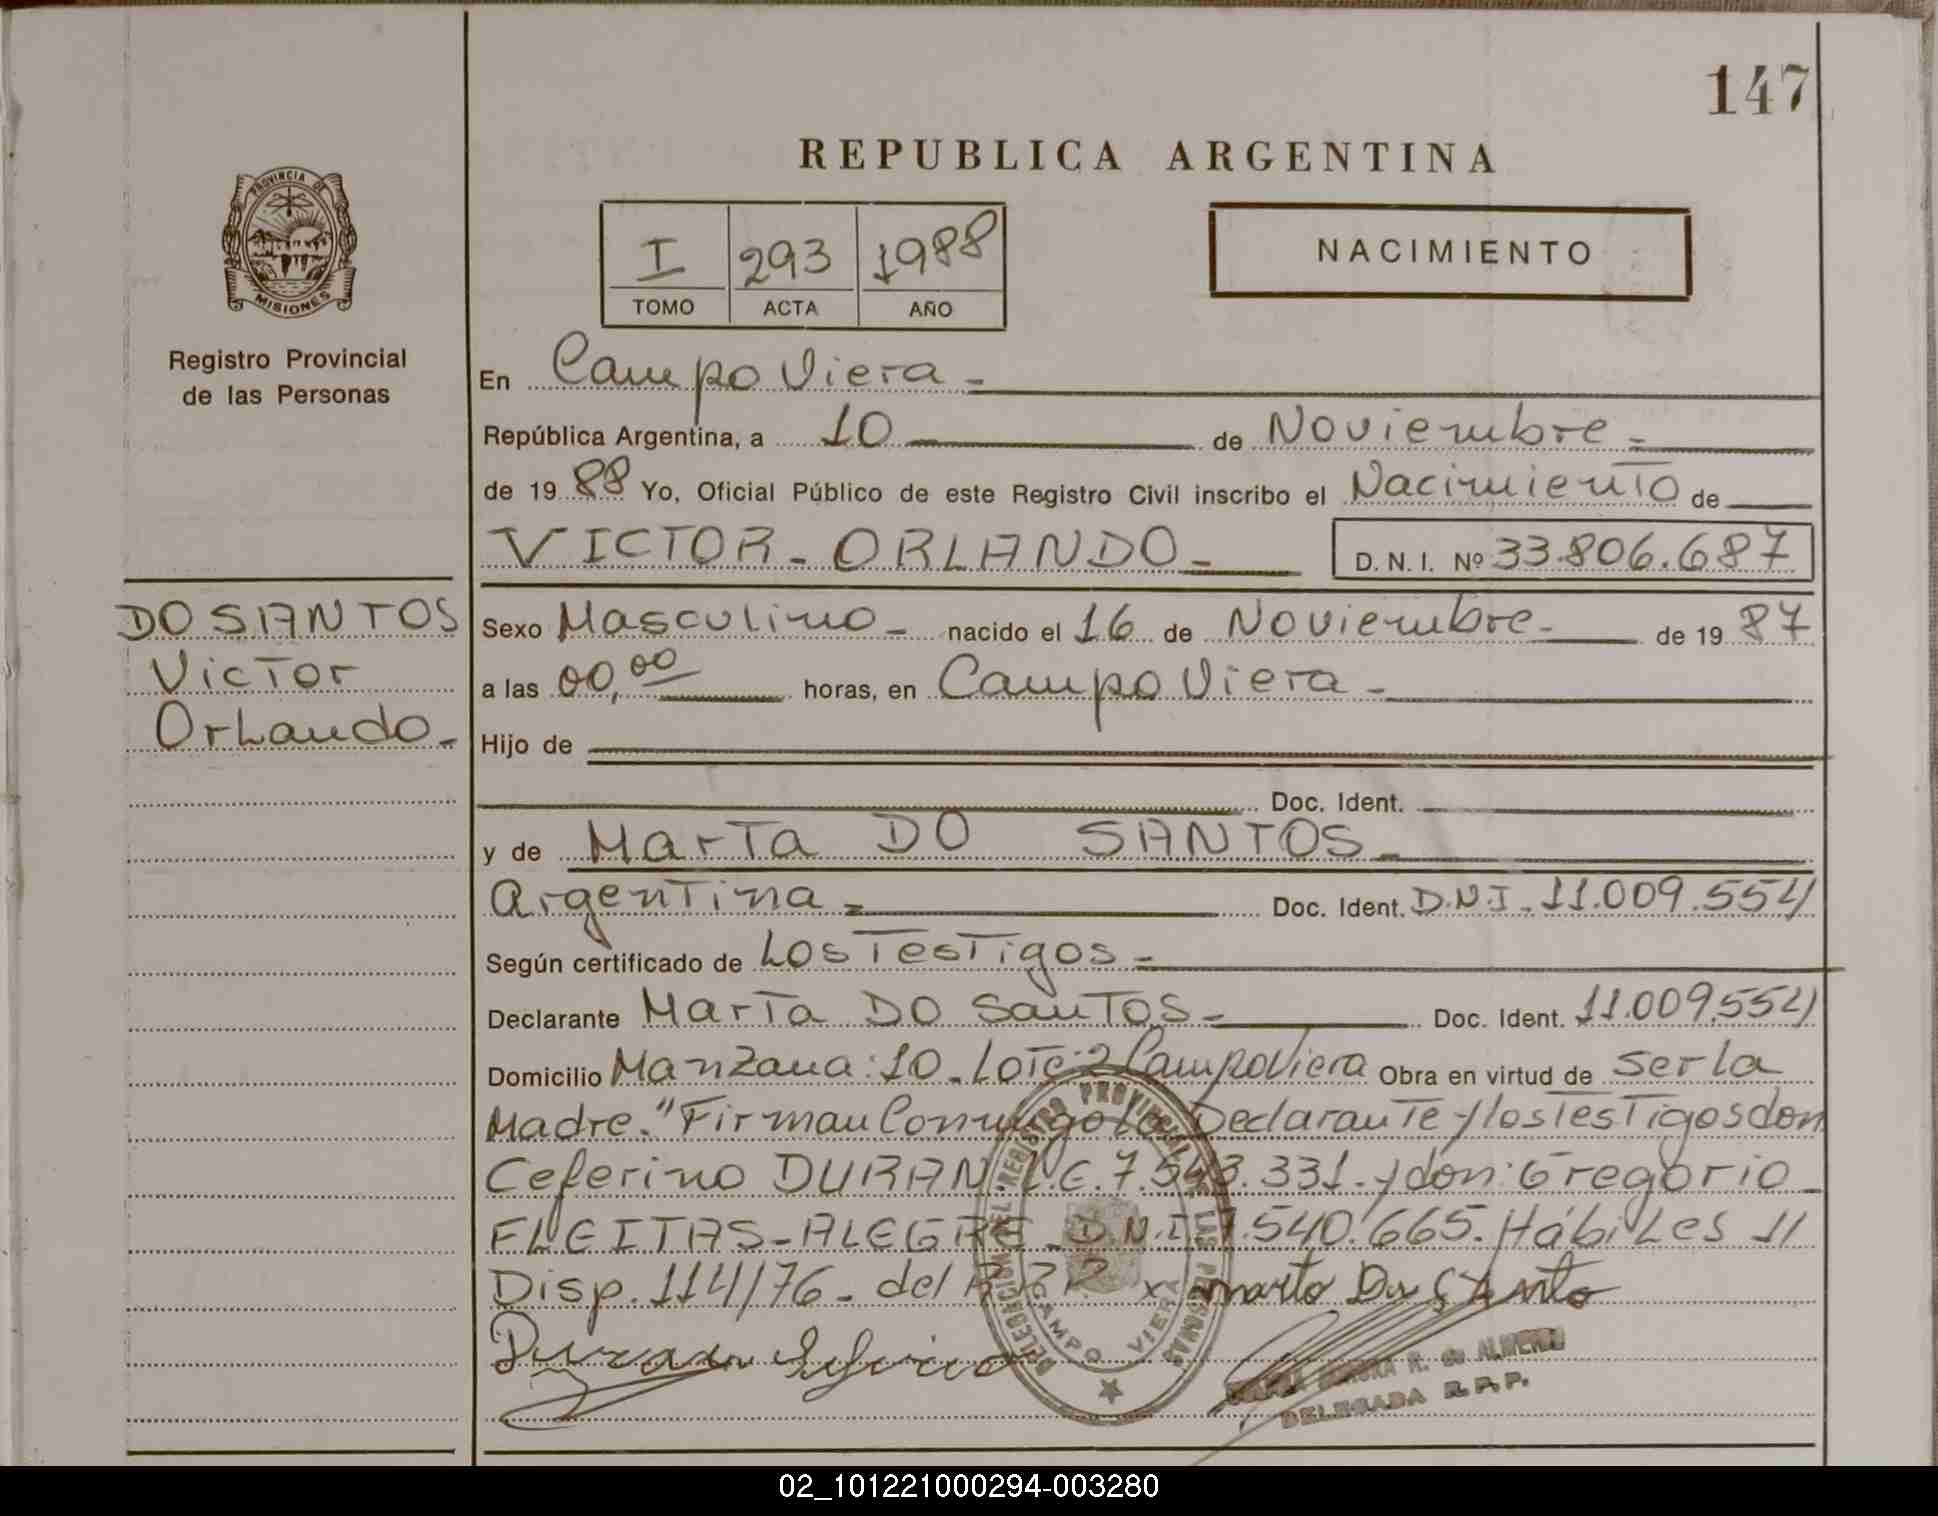 147
REPUBLICA ARGENTINA
PROVINCIA DE
MISIONES
Registro Provincial
de las Personas
I 293 1988
TOMO ACTA AÑO
NACIMIENTO
En Campo Viera -
República Argentina, a 10 de Noviembre -
de 19 88 Yo, Oficial Público de este Registro Civil inscribo el Nacimiento de
VICTOR - ORLANDO - D. N. I. Nº 33.806.687
DO SANTOS
Victor
Orlando -
Sexo Masculino - nacido el 16 de Noviembre - de 19 87
a las 00,00 horas, en Campo Viera -
Hijo de
Doc. Ident.
y de Marta DO SANTOS -
Argentina - Doc. Ident. D.N.I. 11.009.554
Según certificado de Los Testigos -
Declarante Marta DO Santos - Doc. Ident. 11.009.554
Domicilio Manzana: 10 - Lote: 2 Campo Viera Obra en virtud de ser la
Madre. "Firman Conmigo la Declarante y los Testigos don
Ceferino DURAN. L.E. 7.543.331. y don: Gregorio
FLEITAS - ALEGRE - D.N.I. 7.540.665. Hábiles 11
Disp. 114/76 - del R.P.P. x marto Du Santo
Duran
DELEGACION EL REGISTRO PROVINCIAL LAS PERSONAS
CAMPO VIERA
R. de ALMEIDA
DELEGADA R.P.P.
02_101221000294-003280